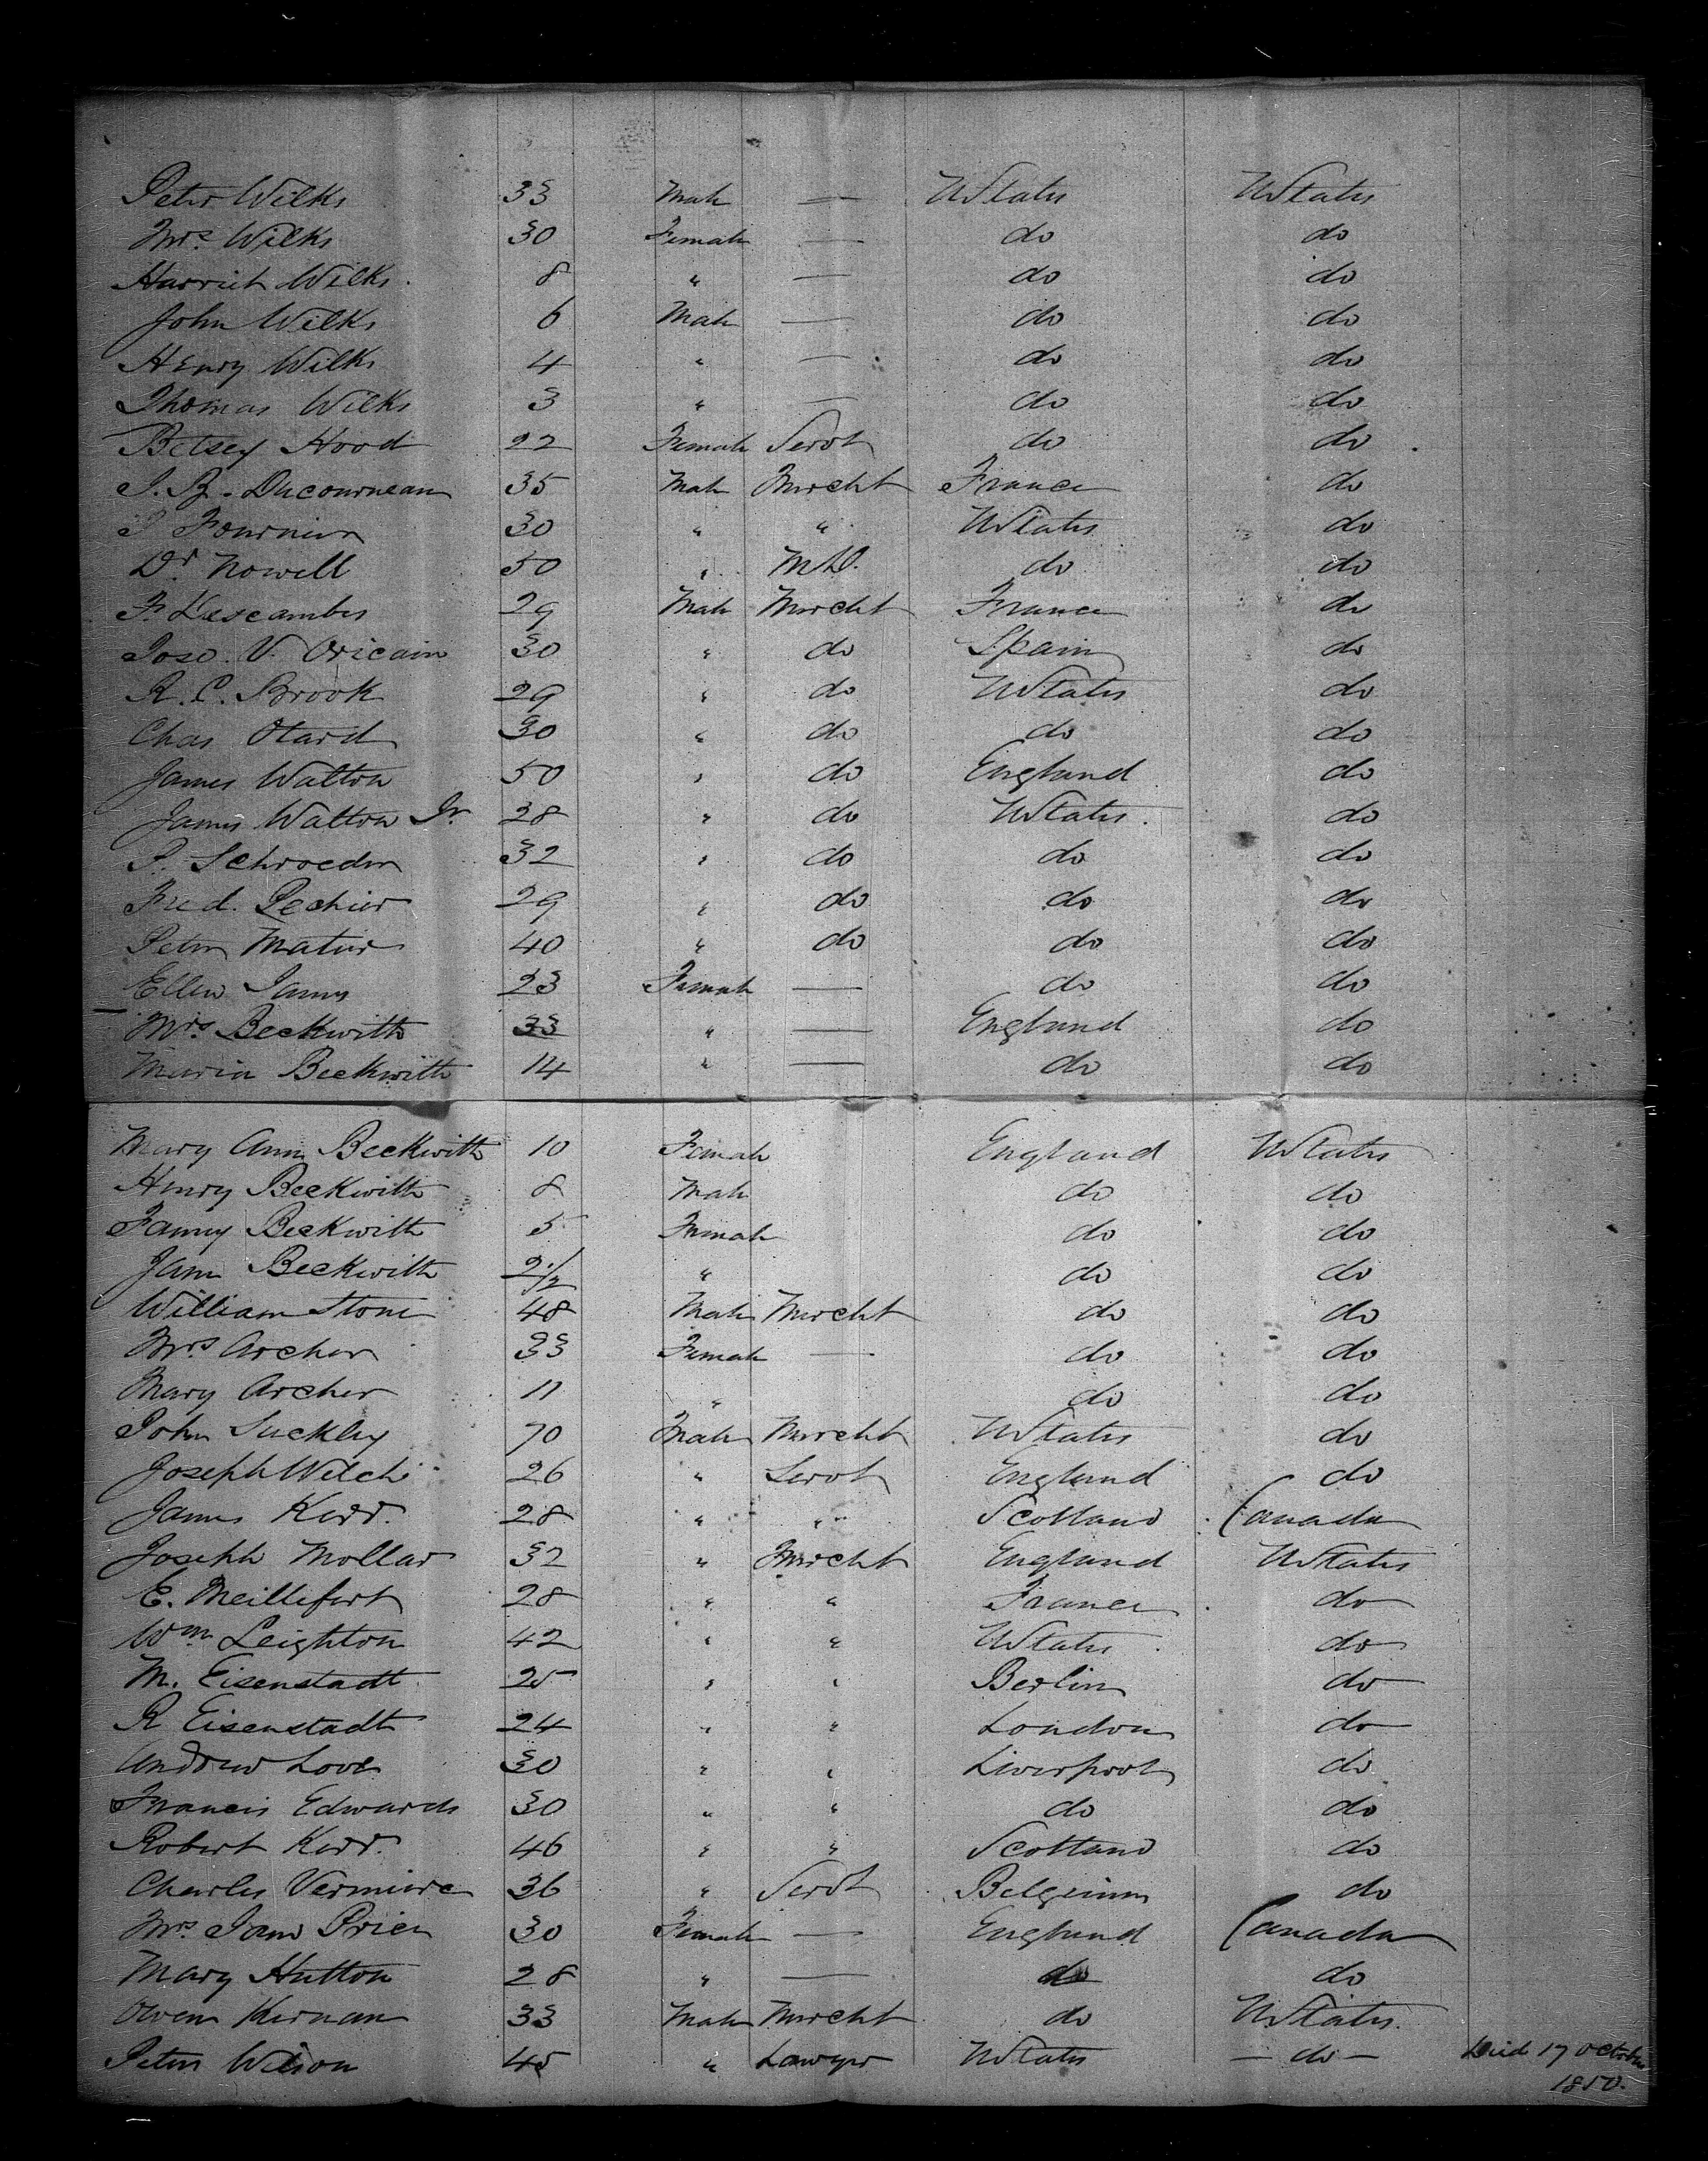 Peter Wilks 33 Male — UStates UStates
Mrs. Wilks 30 Female — do do
Harriet Wilks 8 " — do do
John Wilks 6 Male — do do
Henry Wilks 4 " — do do
Thomas Wilks 3 " — do do
Betsey Hood 22 Female Servt do do
J. B. Ducourneau 35 Male Mercht France do
P Fournier 30 " " UStates do
Dr. Nowell 50 " M.D. do do
F. Lescambes 29 Male Mercht France do
Jose. V. Oricain 30 " do Spain do
R. C. Brook 29 " do UStates do
Chas Otard 30 " do do do
James Walton 50 " do England do
James Walton Jr. 28 " do UStates. do
P. Schroeder 32 " do do do
Fred. Pechier 29 " do do do
Peter Matur 40 " do do do
Ellen James 23 Female — do do
Mrs. Beckwith 33 " — England do
Maria Beckwith 14 " — do do
Mary Ann Beckwith 10 Female England UStates
Henry Beckwith 8 Male do do
Fanny Beckwith 5 Female do do
Jane Beckwith 2 1/2 " do do
William Stone 48 Male Mercht do do
Mrs Archer 33 Female — do do
Mary Archer 11 " do do
John Suckley 70 Male Mercht UStates do
Joseph Welch 26 " Servt England do
James Kerr. 28 " " Scotland Canada
Joseph Mollar 32 " Mercht England UStates
E. Meillefert 28 " " France do
Wm Leighton 42 " " UStates do
M. Eisenstadt 25 " " Berlin do
R Eisenstadt 24 " " London do
Andrew Love 30 " " Liverpool do
Francis Edwards 30 " " do do
Robert Kerr. 46 " " Scotland do
Charles Vermeire 36 " Servt Belgium do
Mrs. Jane Price 30 Female — England Canada
Mary Hutton 28 " — do do
Owen Kernan 33 Male Mercht do UStates.
Peter Wilson 45 " Lawyer UStates — do — Died 17 October
1850.